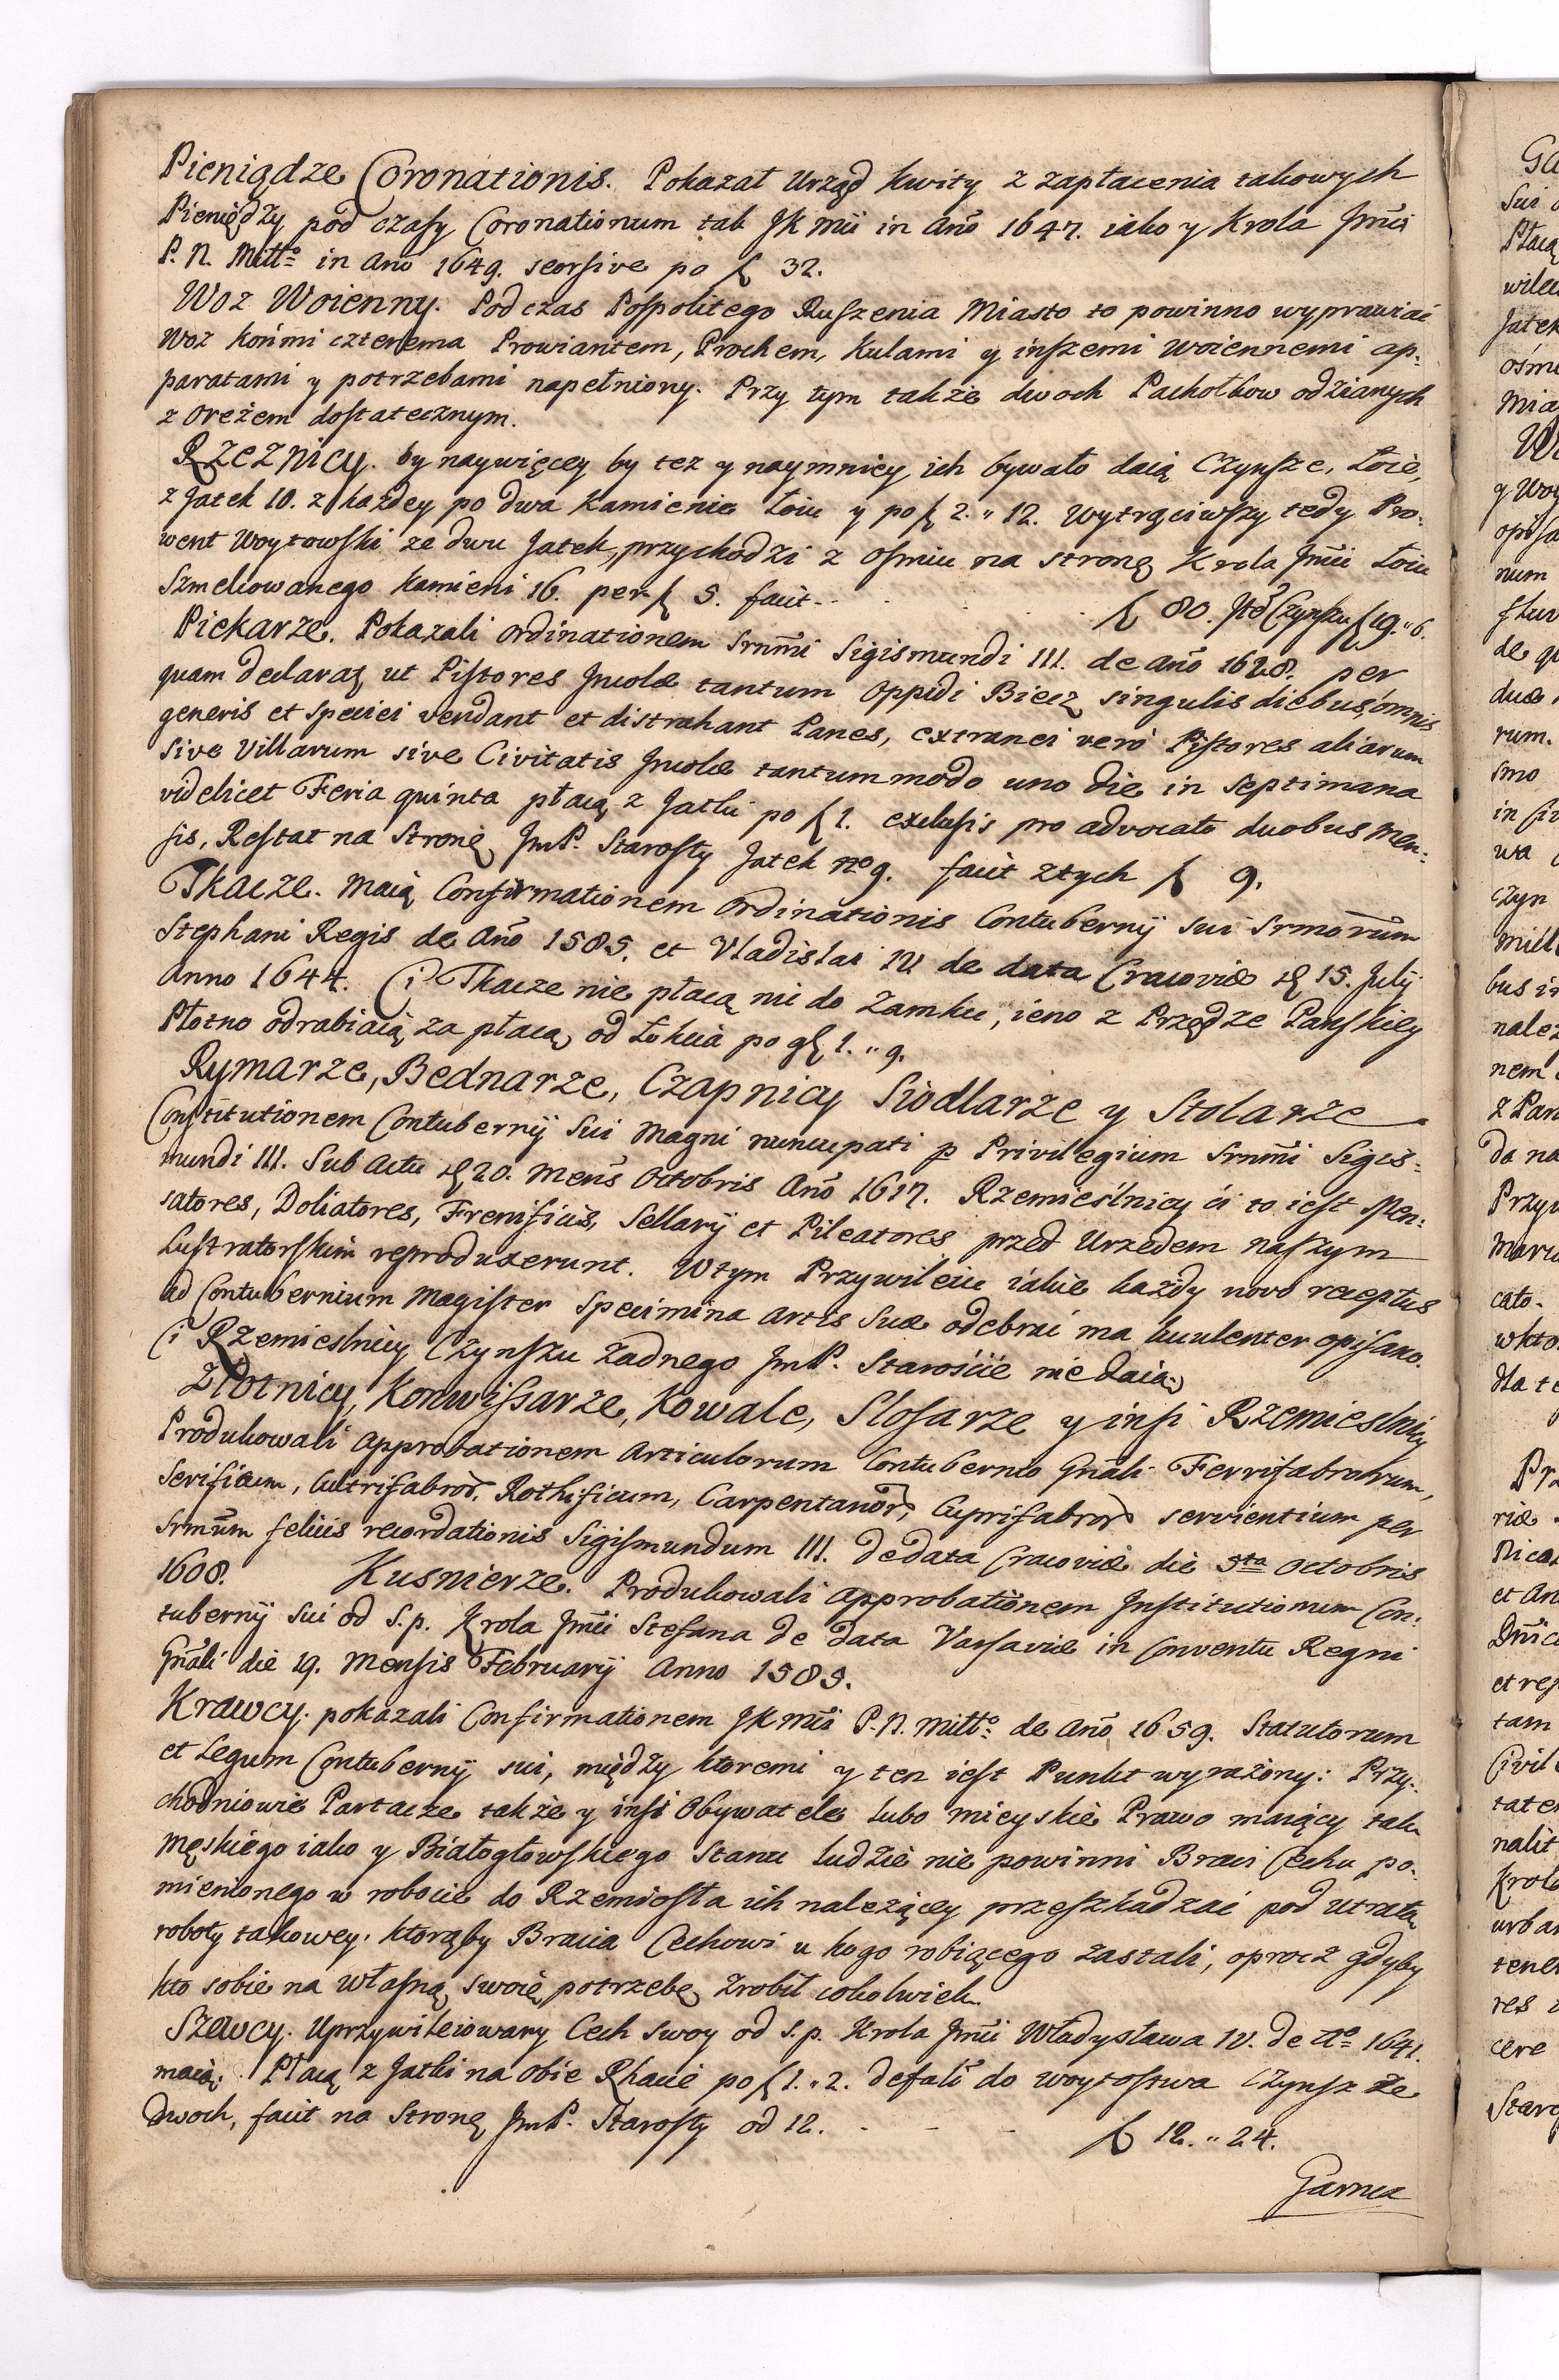 Pieniądze Coronationis. Pokazał Urząd kwity z zapłacenia takowych
Pieniędzy pod czasy Coronationum tak JK Mći in Año 1647. iako y Krola Jmći
P. N. Mittº in Año 1649. seorsive po f 32.
Woz Woienny. Podczas Pospolitego Ruszenia Miasto to powinno wyprawiać
Woz końmi czterema Prowiantem, Prochem, Kulami y inszemi woiennemi ap-
paratami y potrzebami napełniony. Przy tym także dwoch Pachołkow odzianych
z orężem dostatecznym.
Rzeznicy. by naywięcey by tez y naymniey ich bywało daią Czynsze, Łoie,
z Jatek 10. z każdey po dwa Kamienie Łoiu y po f 2. " 12. Wytrąciwszy tedy Pro-
went Woytowski ze dwu Jatek, przychodzi z osmiu na stronę Krola Jmći Łoiu
Szmelcowanego Kamieni 16. per f 5. facit - f 80. Itº Czynszu f 19. " 6.
Piekarze. Pokazali ordinationem Srnm̃i Sigismundi III. de Año 1628. per
quam declarat, ut Pistores Incolæ tantum Oppidi Biecz singulis diebus omnis
generis et speciei vendant et distrahant Panes, extranei vero Pistores aliarum
sive Villarum sive Civitatis Incolæ tantummodo uno die in septimana
videlicet Feria quinta płacą z Jatki po f 1. exclusis pro advocato duobus Men-
sis, Restat na Stronę JmP. Starosty Jatek nro 9. facit ztych f 9.
Tkacze. Maią Confirmationem Ordinationis Contubernÿ sui Srmorum
Stephani Regis de Año 1585. et Vladislai IV de data Cracoviæ d 15. Julÿ
Anno 1644. Ci Tkacze nie płacą nic do Zamku, ieno z Przędze Panskiey
Płotno odrabiaią za płacą od Łokcia po gr 1. " 9.
Rymarze, Bednarze, Czapnicy Siodlarze y Stolarze
Constitutionem Contubernÿ Sui Magni nuncupati p Privilegium Srnm̃i Sigis-
mundi III. Sub Actu d 20. Mens̃ Octobris Año 1617. Rzemieślnicy ci to iest Men-
satores, Doliatores, Frenificiis, Sellarÿ et Pileatores przed Urzedem naszym
Lustratorskim reproduxerunt. Wtym Przywileiu iakie każdy novo receptus
ad Contubernium Magister Specimina Artis Suæ odebrać ma luculenter opisano.
Ci Rzemieslnicy Czynszu żadnego JmP. Starościie nie daią
Złotnicy, Konwissarze, Kowale, Slosarze y insi Rzemieslnicy
Produkowali Approbationem Articulorum Contubernio Gnãli Ferrifabrorum,
Serificum, Cultrifabror̃, Rothificum, Carpentanor̃, Cuprifabror̃ servientium per
Srmum̃ felicis recordationis Sigismundum III. de data Cracoviæ die 3ta octobris
1608. Kusnierze. Produkowali Approbationem Institutionum Con-
tubernÿ Sui od S.p. Krola Jmći Stefana de data Varsaviæ in Conventu Regni
Gnãli die 19. Mensis Februarÿ Anno 1585.
Krawcy. pokazali Confirmationem JK Mći P. N. Mittº de Año 1659. Statutorum
et Legum Contubernÿ sui, między ktoremi y ten iest Punkt wyrażony: Przy-
chodniowie Partacze także y insi Obywatele lubo mieyskie Prawo maiący tak
męskiego iako y Białogłowskiego Stanu ludzie nie powinni Braci Cechu po-
mienionego w robocie do Rzemiosła ich należącey przeszkadzać pod utratą
roboty takowey. ktorąby Bracia Cechowi u kogo robiącego zastali, oprocz gdyby
kto sobie na własną swoię potrzebę zrobił cokolwiek.
Szewcy. Uprzywileiowany Cech swoy od S.p. Krola Jmći Władysława IV. de Aº 1641.
maią. Płacą z Jatki na obie Rhacie po f 1. " 2. defalt̃ do woytostwa Czynsz ze
dwoch, facit na Stronę JmP. Starosty od 12. - - - f 12. " 24.
Garnca